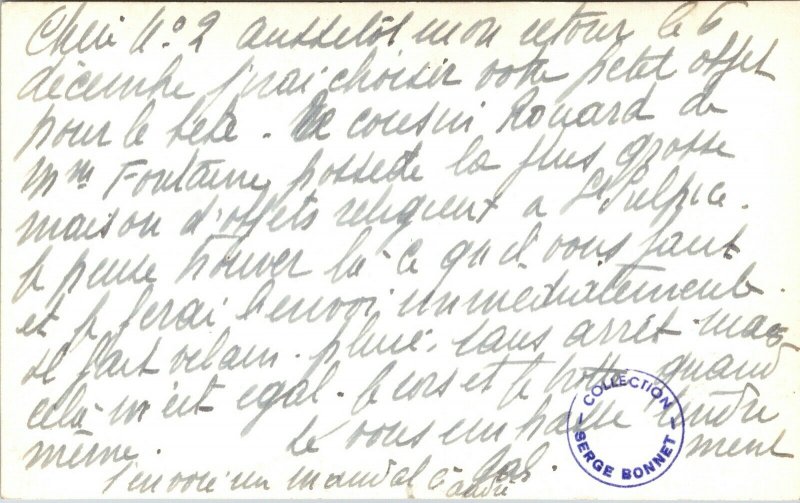 Cheri N°2 aussetôt mon retour le 6
décembre j'irai choisir votre petit offet
pour le bébé. Le cousin Rouard de
Mme Fontaine, possede la plus grosse
maison d'offets religieux a St Sulpice.
je pense trouver là ce qu'il vous faut
et je ferai l'envoi immediatement.
il fait vilain. pluie, sans arrêt. mais
cela m'est egal. je sors et je trotte quand
même. Je vous embrasse tendre
ment
J'envoie un mandat à
COLLECTION
SERGE BONNET